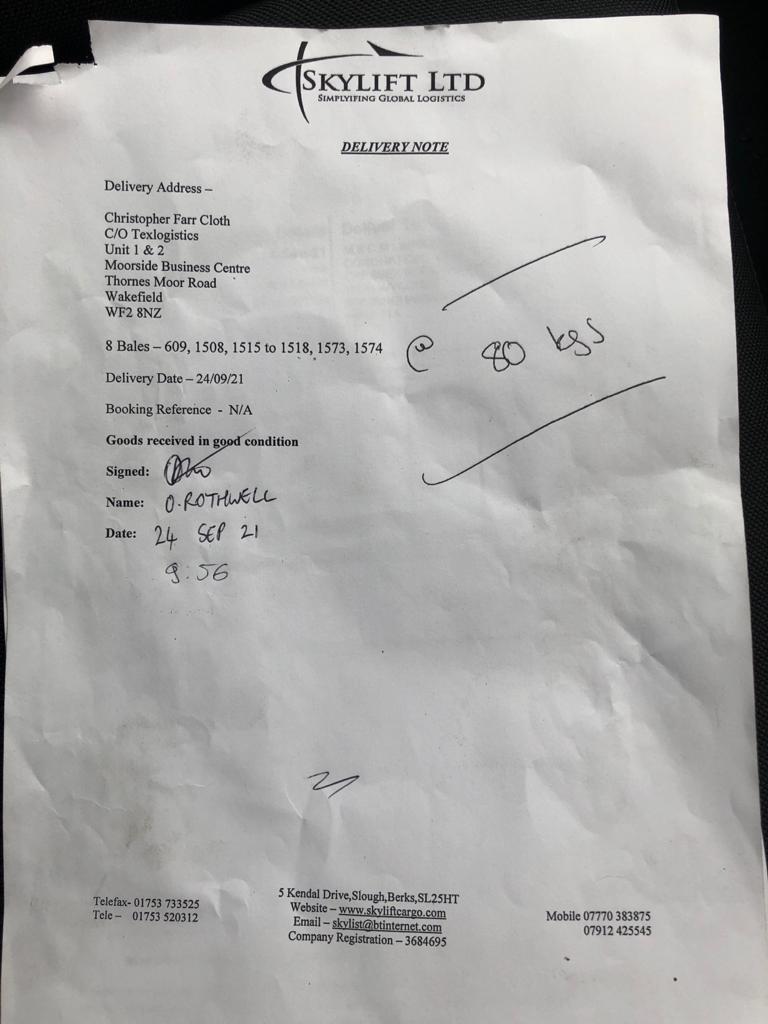 SKYLIFT LTD
SIMPLYIFING GLOBAL LOGISTICS
DELIVERY NOTE
Delivery Address –
Christopher Farr Cloth
C/O Texlogistics
Unit 1 & 2
Moorside Business Centre
Thornes Moor Road
Wakefield
WF2 8NZ
8 Bales – 609, 1508, 1515 to 1518, 1573, 1574 @ 80 kgs
Delivery Date – 24/09/21
Booking Reference - N/A
Goods received in good condition
Signed:
Name: O. ROTHWELL
Date: 24 SEP 21
9:56
Telefax- 01753 733525
Tele – 01753 520312
5 Kendal Drive,Slough,Berks,SL25HT
Website – www.skyliftcargo.com
Email – skylist@btinternet.com
Company Registration – 3684695
Mobile 07770 383875
07912 425545